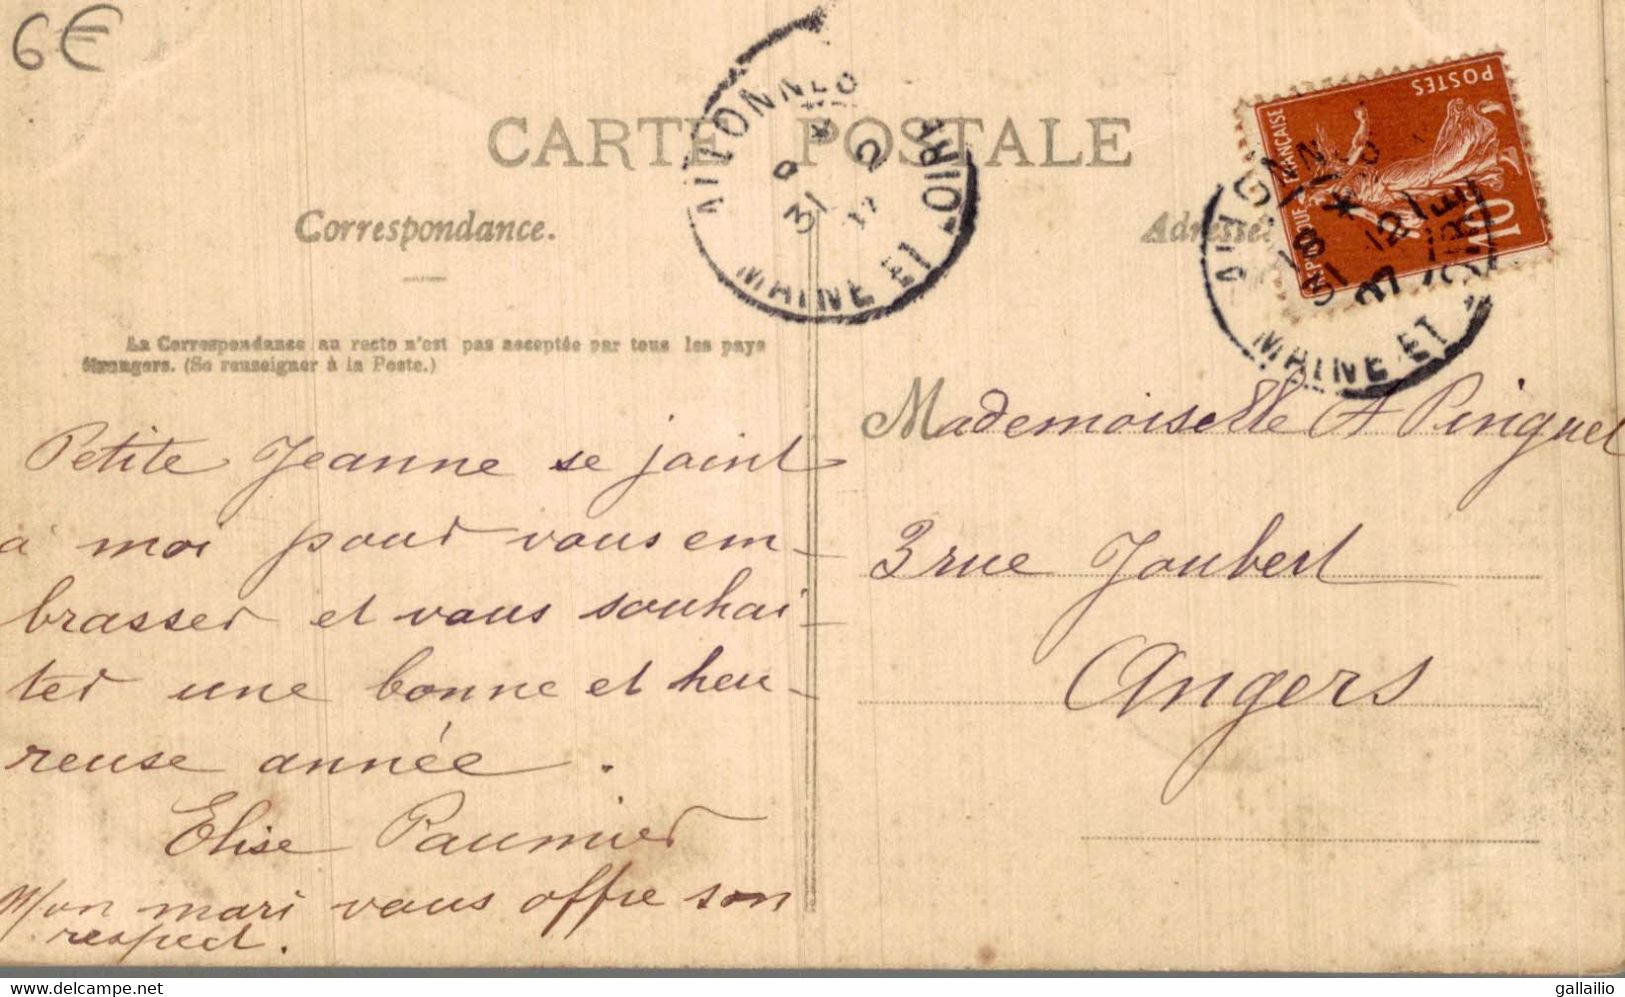 6€
CARTE POSTALE
Correspondance.
Adresse.
La Correspondance au recto n'est pas acceptée par tous les pays
étrangers. (Se renseigner à la Poste.)
Petite Jeanne se joint
à moi pour vous em-
brasser et vous souhai-
ter une bonne et heu-
reuse année.
Elise Paumier
Mon mari vous offre son
respect.
ALLONNES
8
31 12
MAINE ET LOIRE
POSTES
REPUBLIQUE FRANÇAISE
10
18
31 12
07
MAINE ET LOIRE
Mademoiselle A Pinguet
3 rue Joubert
Angers
gallailio